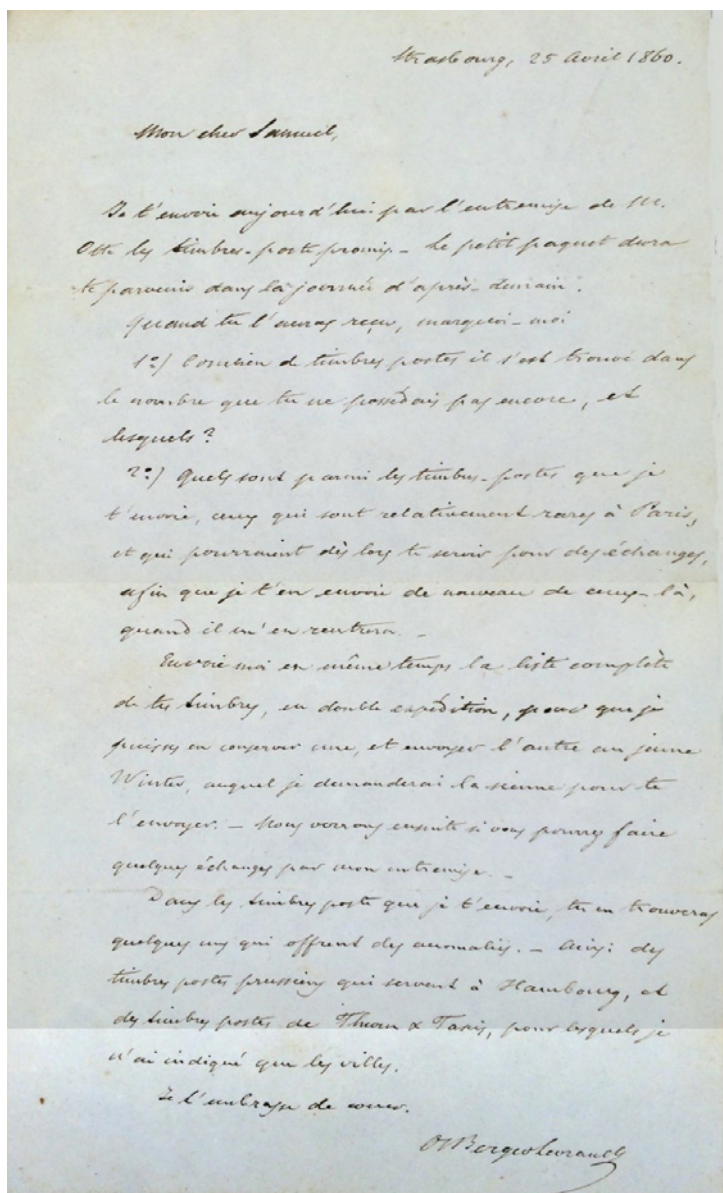 Strasbourg, 25 Avril 1860.
Mon cher Samuel,
Je t'envoie aujourd'hui par l'entremise de Mr.
Otte les timbres-poste promis. – Le petit paquet devra
te parvenir dans la journée d'après-demain.
Quand tu l'auras reçu, marque-moi
1o) Combien de timbres postes il s'est trouvé dans
le nombre que tu ne possédais pas encore, et
lesquels ?
2o) Quels sont parmi les timbres-postes que je
t'envoie, ceux qui sont relativement rares à Paris,
et qui pourraient dès lors te servir pour des échanges,
afin que je t'en envoie de nouveau de ceux-là,
quand il m'en rentrera. –
Envoie moi en même temps la liste complète
de tes timbres, en double expédition, pour que je
puisse en conserver une, et envoyer l'autre au jeune
Winter, auquel je demanderai la sienne pour te
l'envoyer. – Nous verrons ensuite si vous pourrez faire
quelques échanges par mon entremise. –
Dans les timbres poste que je t'envoie, tu en trouveras
quelques uns qui offrent des anomalies. – Ainsi des
timbres postes prussiens qui servent à Hambourg, et
des timbres postes de Thurn & Taxis, pour lesquels je
n'ai indiqué que les villes.
Je t'embrasse de coeur.
O Berger Levrault